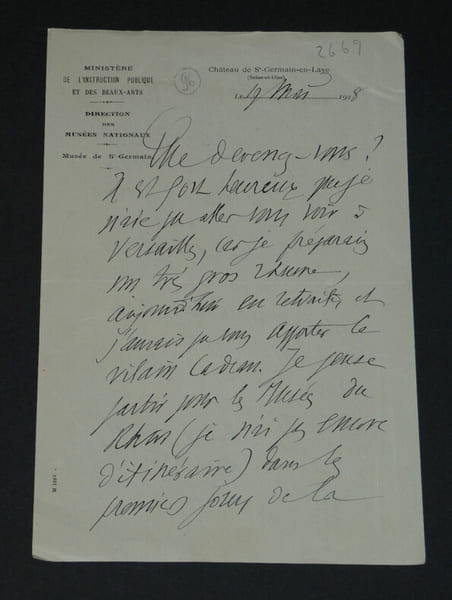 2669
MINISTÈRE
DE L'INSTRUCTION PUBLIQUE
ET DES BEAUX-ARTS
DIRECTION
DES
MUSÉES NATIONAUX
Musée de St Germain
96
Château de St-Germain-en-Laye
(Seine-et-Oise)
Le 9 Mai 1928
Que devenez-vous?
Il est fort heureux que je
n'aie pu aller vous voir à
Versailles, car je préparais
un très gros rhume,
aujourd'hui en retraite, et
j'aurais pu vous apporter ce
vilain cadeau. Je pense
partir pour les Musées du
Rhin (je n'ai pas encore
d'itinéraire) dans les
premiers jours de la